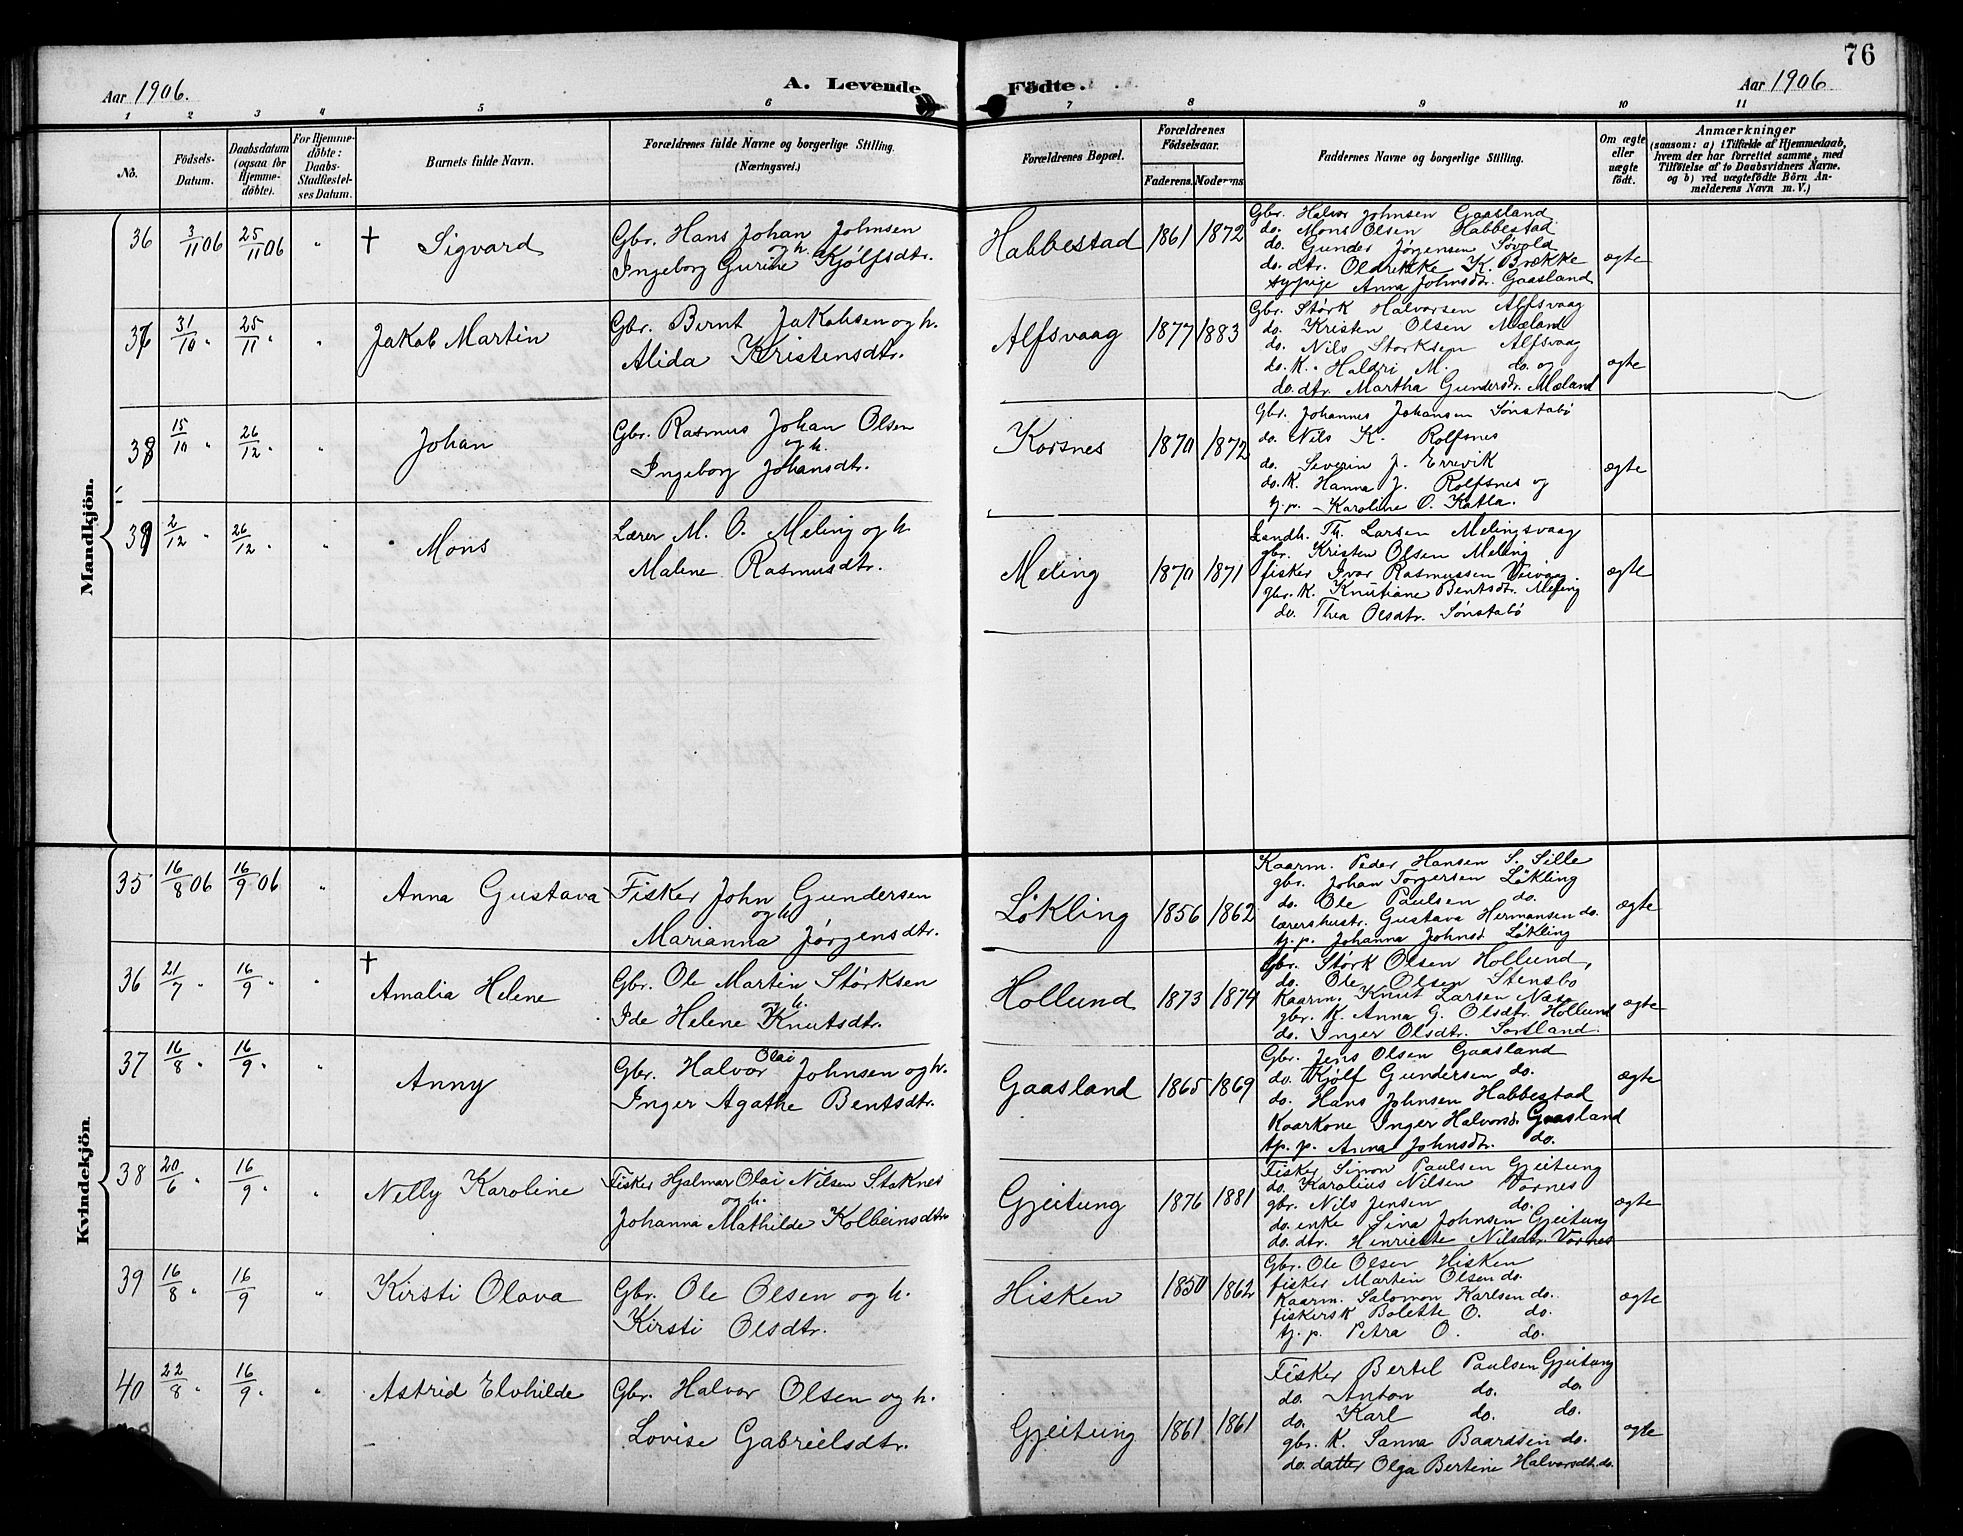 76
Aar 1906.
A. Levende
Födte.
Aar 1906
1 2 3 4 5 6 7 8 9 10 11
No.
Födsels-
Datum.
Daabsdatum
(ogsaa for
Hjemme-
döbte).
For Hjemme-
döbte:
Daabs-
Stadfæstel-
ses Datum.
Barnets fulde Navn.
Forældrenes fulde Navne og borgerlige Stilling.
(Næringsvei.)
Forældrenes Bopæl.
Forældrenes
Födselsaar.
Faderens. Moderens.
Faddernes Navne og borgerlige Stilling.
Om ægte
eller
uægte
født.
Anmærkninger
(saasom: a) i Tilfælde af Hjemmedaab,
hvem der har forrettet samme, med
Tilföielse af to Daabsvidners Navne.
og b) ved uægtefödte Börn An-
melderens Navn m. V.)
Mandkjön.
36 3/11 06 25/11 06 " † Sigvard
Gbr. Hans Johan Johnsen
og h.
Ingeborg Gurine Kjølfsdtr.
Habbestad 1861 1872
Gbr. Halvor Johnsen Gaasland
do. Mons Olsen Habbestad
do. Gunder Jørgensen Søvold
do. dtr. Olarikke K. Brække
sypige Anna Johnsdtr. Gaasland
ægte
37 31/10 " 25/11 " " Jakob Martin
Gbr. Bernt Jakobsen og h.
Alida Kristensdtr.
Alfsvaag 1877 1883
Gbr. Størk Halvorsen Alfsvaag
do. Kristen Olsen Mæland
do. Nils Storksen Alfsvaag
do. K. Haldri M. do. og
do. dtr. Martha Gundersdr. Mæland
ægte
38 15/10 " 26/12 " " Johan
Gbr. Rasmus Johan Olsen
og h.
Ingeborg Johansdtr.
Korsnes 1870 1872
Gbr. Johannes Johansen Sønstabø
do. Nils K. Rolfsnes
do. Severin J. Errevik
do. K. Hanna J. Rolfsnes og
tj. p. Karoline O. Katla.
ægte
39 2/12 " 26/12 " " Mons
Lærer M. O. Meling og h.
Malene Rasmusdtr.
Meling 1870 1871
Landh. Th. Larsen Melingsvaag
gbr. Kristen Olsen Meling
fisker Ivar Rasmussen
gbr. K. Knutiane Bentsdtr. Meling
do. Thea Olsdtr. Sønstabø
ægte
Kvindekjön.
35 16/8 06 16/9 06 " Anna Gustava
Fisker John Gundersen
og h.
Marianna Jørgensdtr.
Løkling 1856 1862
Kaarm. Peder Hansen S. Sille
gbr. Johan Torgersen Løkling
do. Ole Paulsen do.
lærershustr. Gustava Hermansen do.
tj. p. Johanna Johnsd. Løkling
ægte
36 21/7 " 16/9 " " † Amalia Helene
Gbr. Ole Martin Størksen
og h.
Ide Helene Knutsdtr.
Hollund 1873 1874
Gbr. Størk Olsen Hollund,
do. Ole Olsen Stensbø
Kaarm. Knut Larsen Næse
gbr. K. Anna G. Olsdtr. Hollund
do. Inger Olsdtr. Sortland.
ægte
37 16/8 " 16/9 " " Anny
Gbr. Halvor Olai Johnsen og h.
Inger Agathe Bentsdtr.
Gaasland 1865 1869
Gbr. Jens Olsen Gaasland
do. Kjølf Gundersen do.
do. Hans Johnsen Habbestad
Kaarkone Inger Halvorsd. Gaasland
tp. p. Anna Johnsdtr. do.
ægte
38 20/6 " 16/9 " " Nelly Karoline
Fisker Hjalmar Olai Nilsen Stoknes
og h.
Johanna Mathilde Kolbeinsdtr
Gjeitung 1876 1881
Fisker Simon Paulsen Gjeitung
do. Karolius Nilsen Vornes
gbr. Nils Jensen do.
do. enke Sina Johnsen Gjeitung
do. dtr. Henriette Nilsdtr. Vornes
ægte
39 16/8 " 16/9 " Kirsti Olava
Gbr. Ole Olsen og h.
Kirsti Olsdtr.
Hisken 1850 1862
Gbr. Ole Olsen Hisken
fisker Martin Olsen do.
Kaarm. Salomon Karlsen do.
fiskersk Bolette O. do.
tj. p. Petra O. do.
ægte
40 22/8 " 16/9 " " Astrid Elvhilde
Gbr. Halvor Olsen og h.
Lovise Gabrielsdtr.
Gjeitung 1861 1861
Fisker Bertel Paulsen Gjeitung
do. Anton do. do.
do. Karl do. do.
gbr. K. Sanna Baardsen do.
do. datter Olga Bertine Halvorsdtr. do.
ægte